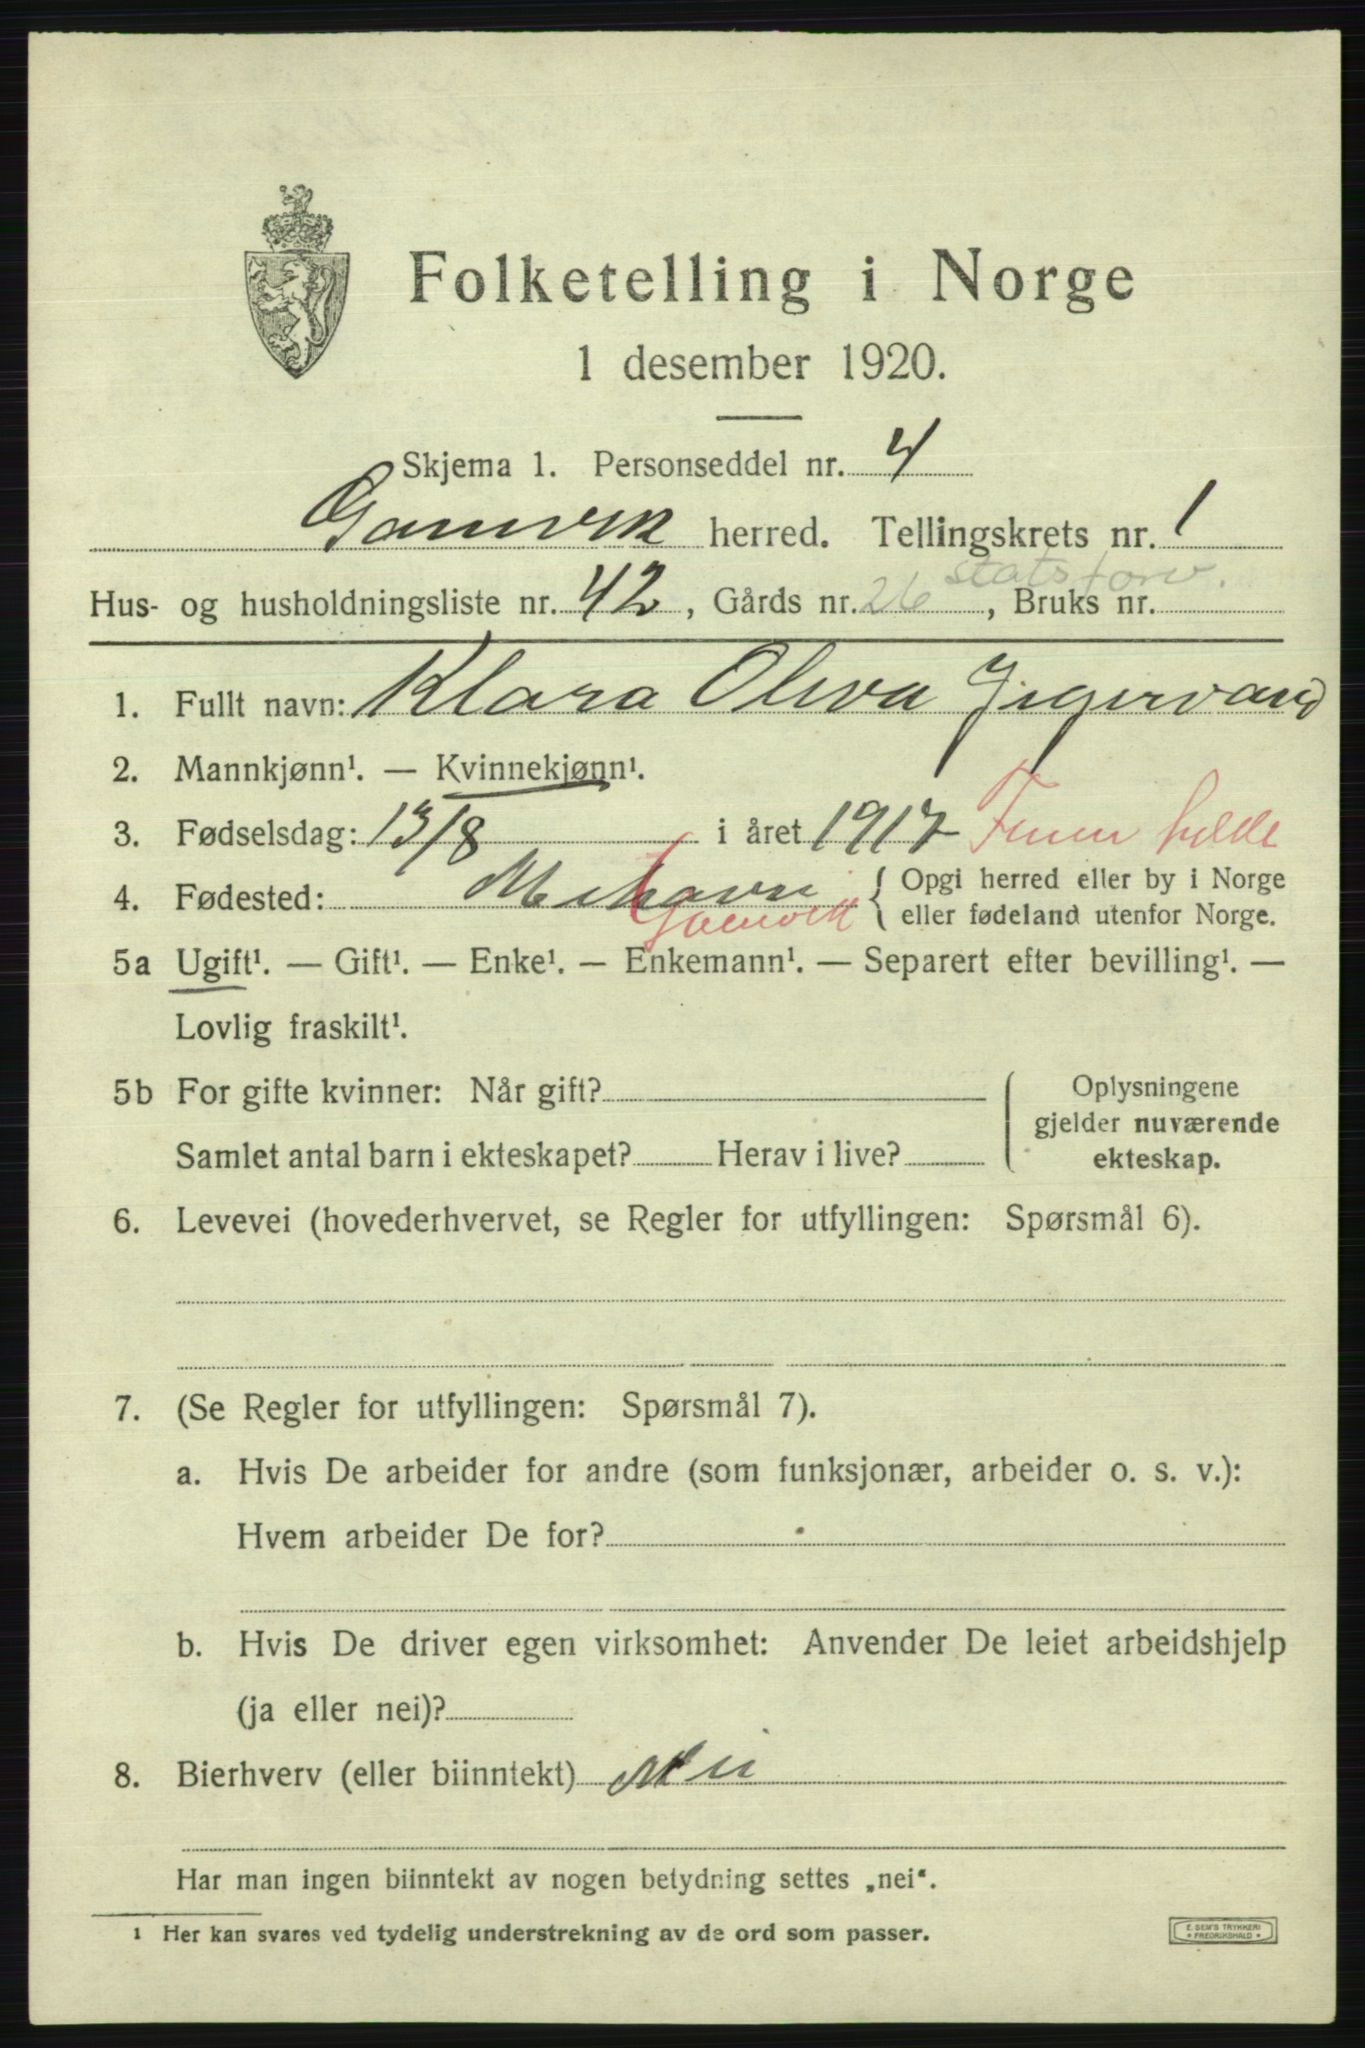 Folketelling i Norge
1 desember 1920.
Skjema 1. Personseddel nr. 4
Gamvik herred. Tellingskrets nr. 1
statsforv.
Hus- og husholdningsliste nr. 42, Gårds nr. 26, Bruks nr.
1. Fullt navn: Klara Oliva
2. Mannkjønn¹. — Kvinnekjønn¹.
3. Fødselsdag: 13/8 i året 1917
4. Fødested: Mehavn { Opgi herred eller by i Norge
Gamvik eller fødeland utenfor Norge.
5a Ugift¹. — Gift¹. — Enke¹. — Enkemann¹. — Separert efter bevilling¹. —
Lovlig fraskilt¹.
5b For gifte kvinner: Når gift?
Samlet antal barn i ekteskapet? Herav i live?
Oplysningene
gjelder nuværende
ekteskap.
6. Levevei (hovederhvervet, se Regler for utfyllingen: Spørsmål 6).
7. (Se Regler for utfyllingen: Spørsmål 7).
a. Hvis De arbeider for andre (som funksjonær, arbeider o. s. v.):
Hvem arbeider De for?
b. Hvis De driver egen virksomhet: Anvender De leiet arbeidshjelp
(ja eller nei)?
8. Bierhverv (eller biinntekt) Nei
Har man ingen biinntekt av nogen betydning settes „nei“.
¹ Her kan svares ved tydelig understrekning av de ord som passer.
E. SEM'S TRYKKERI
* FREDRIKSHALD *